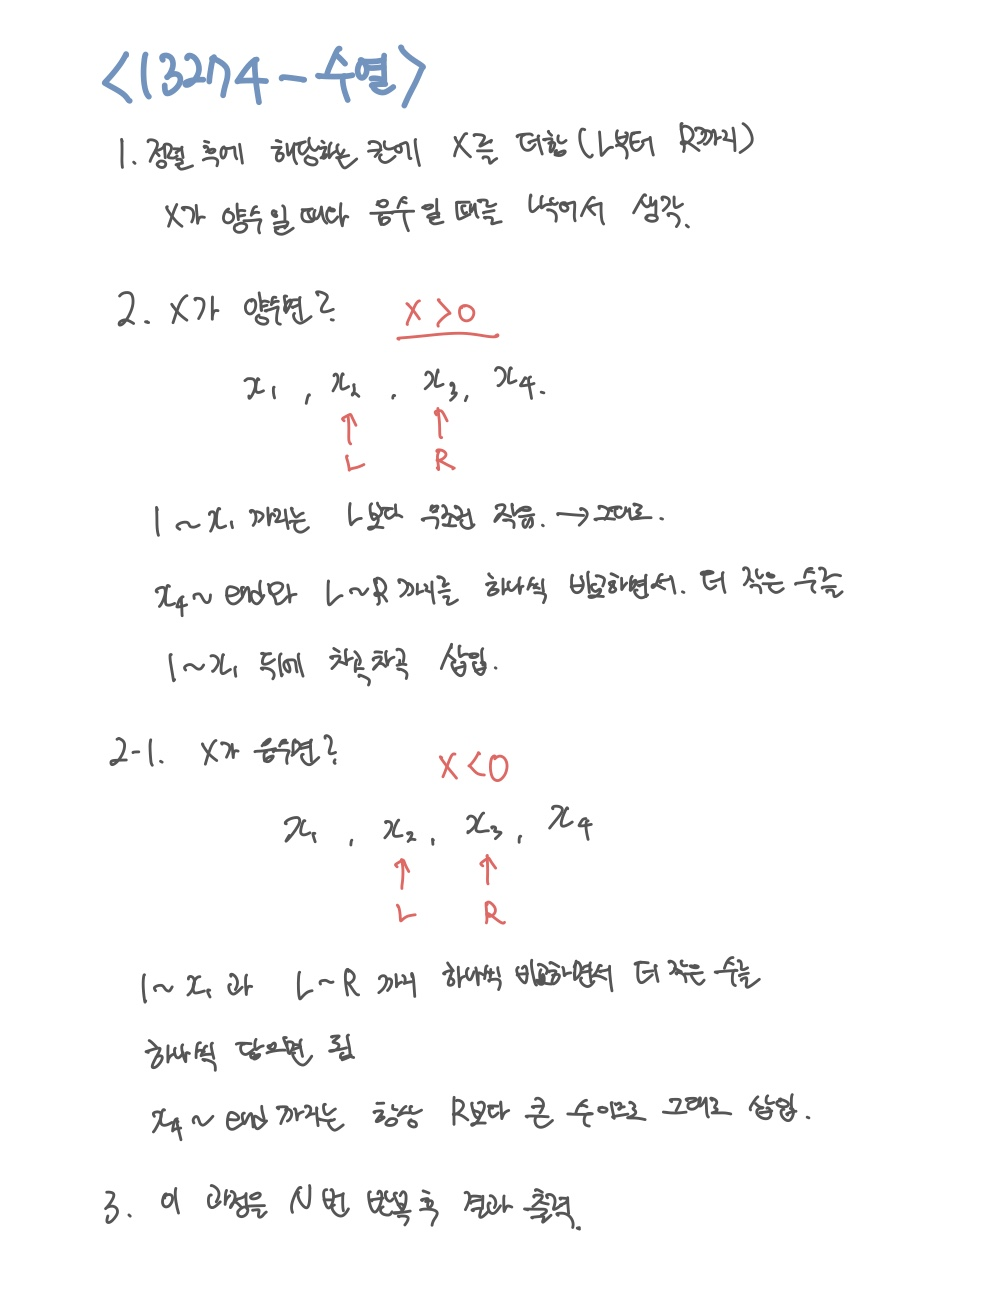 <13274 - 수열>
1. 정렬 후에 해당하는 칸에 X를 더함 (L부터 R까지)
X가 양수일 때다 음수일 때를 나누어서 생각.
2. X가 양수면? X > 0
x₁ , x₂ , x₃, x₄.
↑ ↑
L R
1 ~ x₁ 까지는 L보다 무조건 작음. → 그대로.
x₄ ~ end와 L ~ R 까지를 하나씩 비교하면서. 더 작은 수를
1 ~ x₁ 뒤에 차곡차곡 삽입.
2-1. X가 음수면? X < 0
x₁ , x₂ , x₃ , x₄
↑ ↑
L R
1 ~ x₁ 과 L ~ R 까지 하나씩 비교하면서 더 작은 수를
하나씩 담으면 됨
x₄ ~ end 까지는 항상 R보다 큰 수이므로 그대로 삽입.
3. 이 과정을 N번 반복 후 결과 출력.